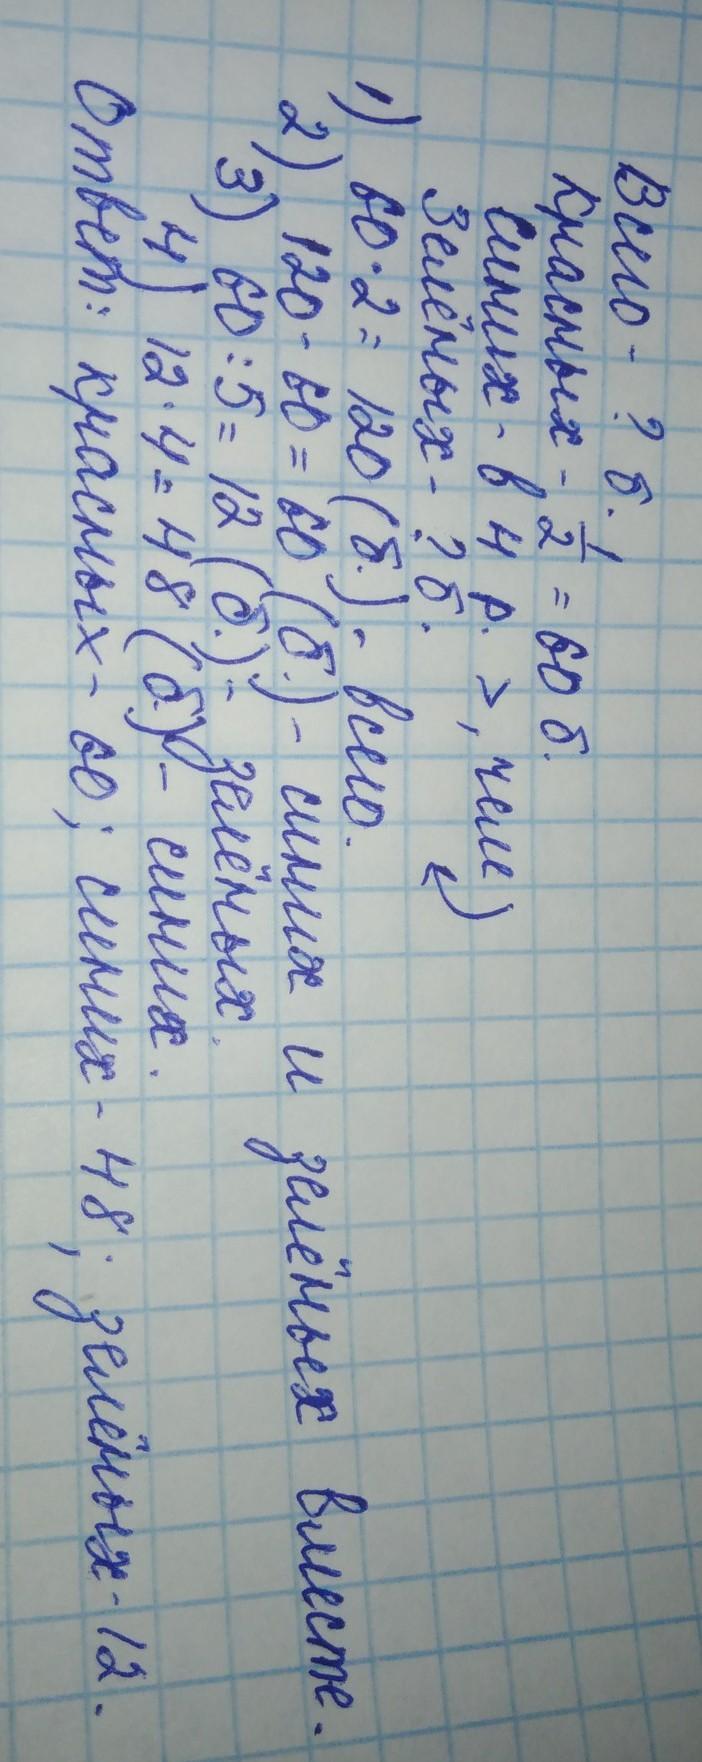 Всего - ? б.
Красных - 1/2 = 60 б.
Синих - в 4 р. >, чем
Зелёных - ? б.
1) 60·2 = 120 (б.) - всего.
2) 120 - 60 = 60 (б.) - синих и зелёных вместе.
3) 60 : 5 = 12 (б.) - зелёных.
4) 12·4 = 48 (б.) - синих.
Ответ: красных - 60; синих - 48; зелёных - 12.